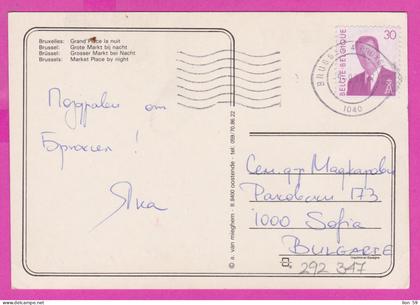 Bruxelles: Grand'Place la nuit
Brussel: Grote Markt bij nacht
Brüssel: Grosser Markt bei Nacht
Brussels: Market Place by night
30
BELGIE-BELGIQUE
1040
Поздрави от
Брюксел!
Яка
Сем. д-р Маджарови
Раковски 173
1000 Sofia
BULGARIE
292 347
© a. van mieghem - B. 8400 oostende - tel. 059/70.86.22